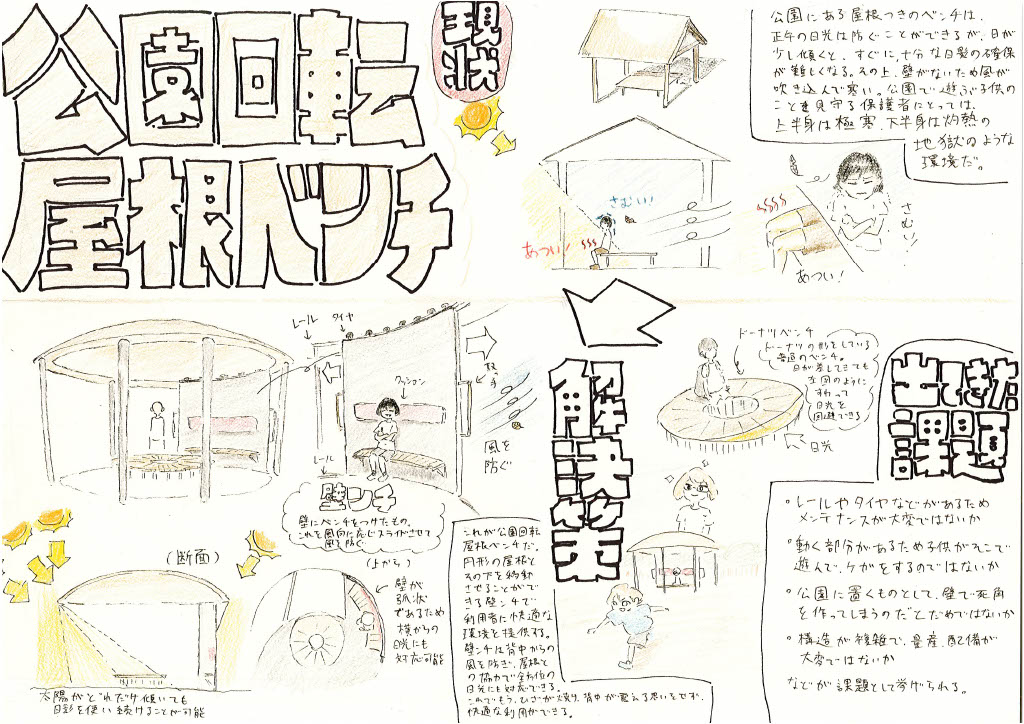 公園回転
屋根ベンチ
現状
公園にある屋根つきのベンチは、
正午の日光は防ぐことができるが、日が
少し傾くと、すぐに十分な日影の確保
が難しくなる。その上、壁がないため風が
吹き込んで寒い。公園で遊ぶ子供の
ことを見守る保護者にとっては、
上半身は極寒、下半身は灼熱の
地獄のような
環境だ。
さむい!
あつい!
さむい!
あつい!
解決策
レール
タイヤ
取手
クッション
レール
風を
防ぐ
壁ンチ
壁にベンチをつけたもの。
これを風向に応じスライドさせて
風を防ぐ
ドーナツベンチ
ドーナツの形をしている
普通のベンチ。
日が差してきても
左図のように
すわって
日光を
回避できる
日光
(断面)
太陽がどれだけ傾いても
日影を使い続けることが可能
(上から)
壁が
弧状
であるため
横からの
日光にも
対応可能
これが公園回転
屋根ベンチだ。
円形の屋根と
その下を移動
させることがで
きる壁ンチで
利用者に快適な
環境を提供する。
壁ンチは背中からの
風を防ぎ、屋根と
の協力で全方位の
日光にも対応できる。
これでもう、ひざが焼け、背中が震える思いをせず、
快適な利用ができる。
出てきた
課題
・レールやタイヤなどがあるため
メンテナンスが大変ではないか
・動く部分があるため子供がそこで
遊んで、ケガをするのではないか
・公園に置くものとして、壁で死角
を作ってしまうのだとだめではないか
・構造が複雑で、量産、配備が
大変ではないか
などが課題として挙げられる。